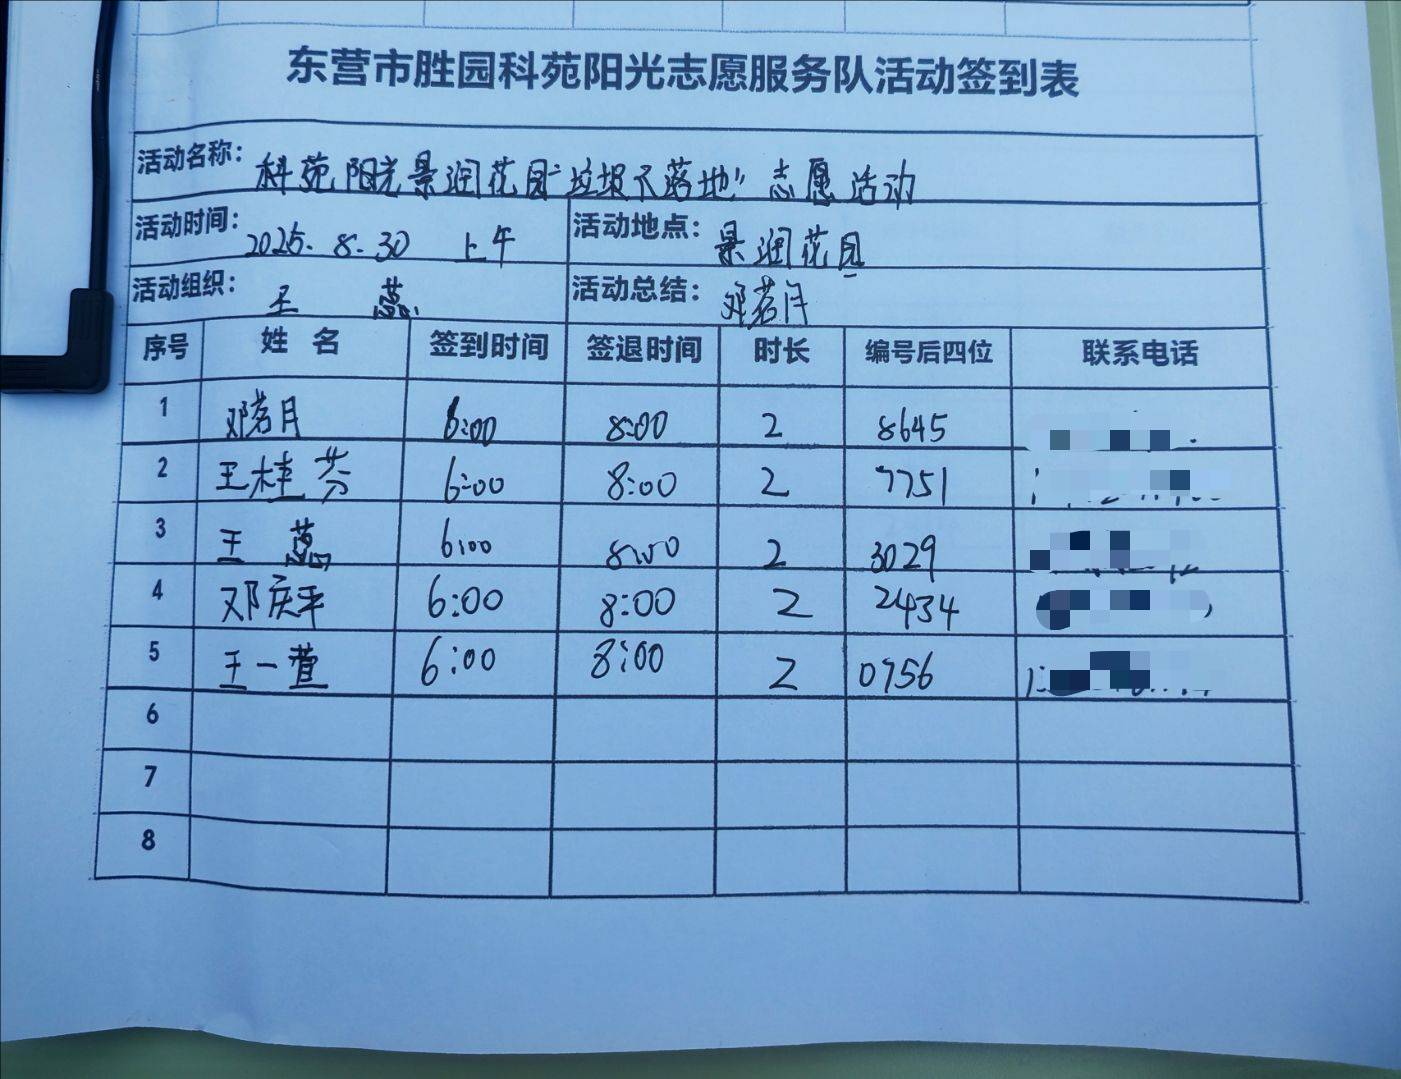 东营市胜园科苑阳光志愿服务队活动签到表
活动名称： 科苑阳光景润花园“垃圾不落地”志愿活动
活动时间： 2025.8.30 上午 活动地点： 景润花园
活动组织： 王蕊 活动总结： 邓茗月
序号 姓名 签到时间 签退时间 时长 编号后四位 联系电话
1 邓茗月 6:00 8:00 2 8645
2 王桂芬 6:00 8:00 2 7751
3 王蕊 6:00 8:00 2 3029
4 邓庆平 6:00 8:00 2 2434
5 王一萱 6:00 8:00 2 0756
6
7
8